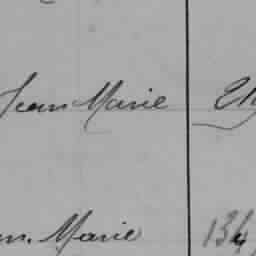 Jean Marie
n. Marie 134